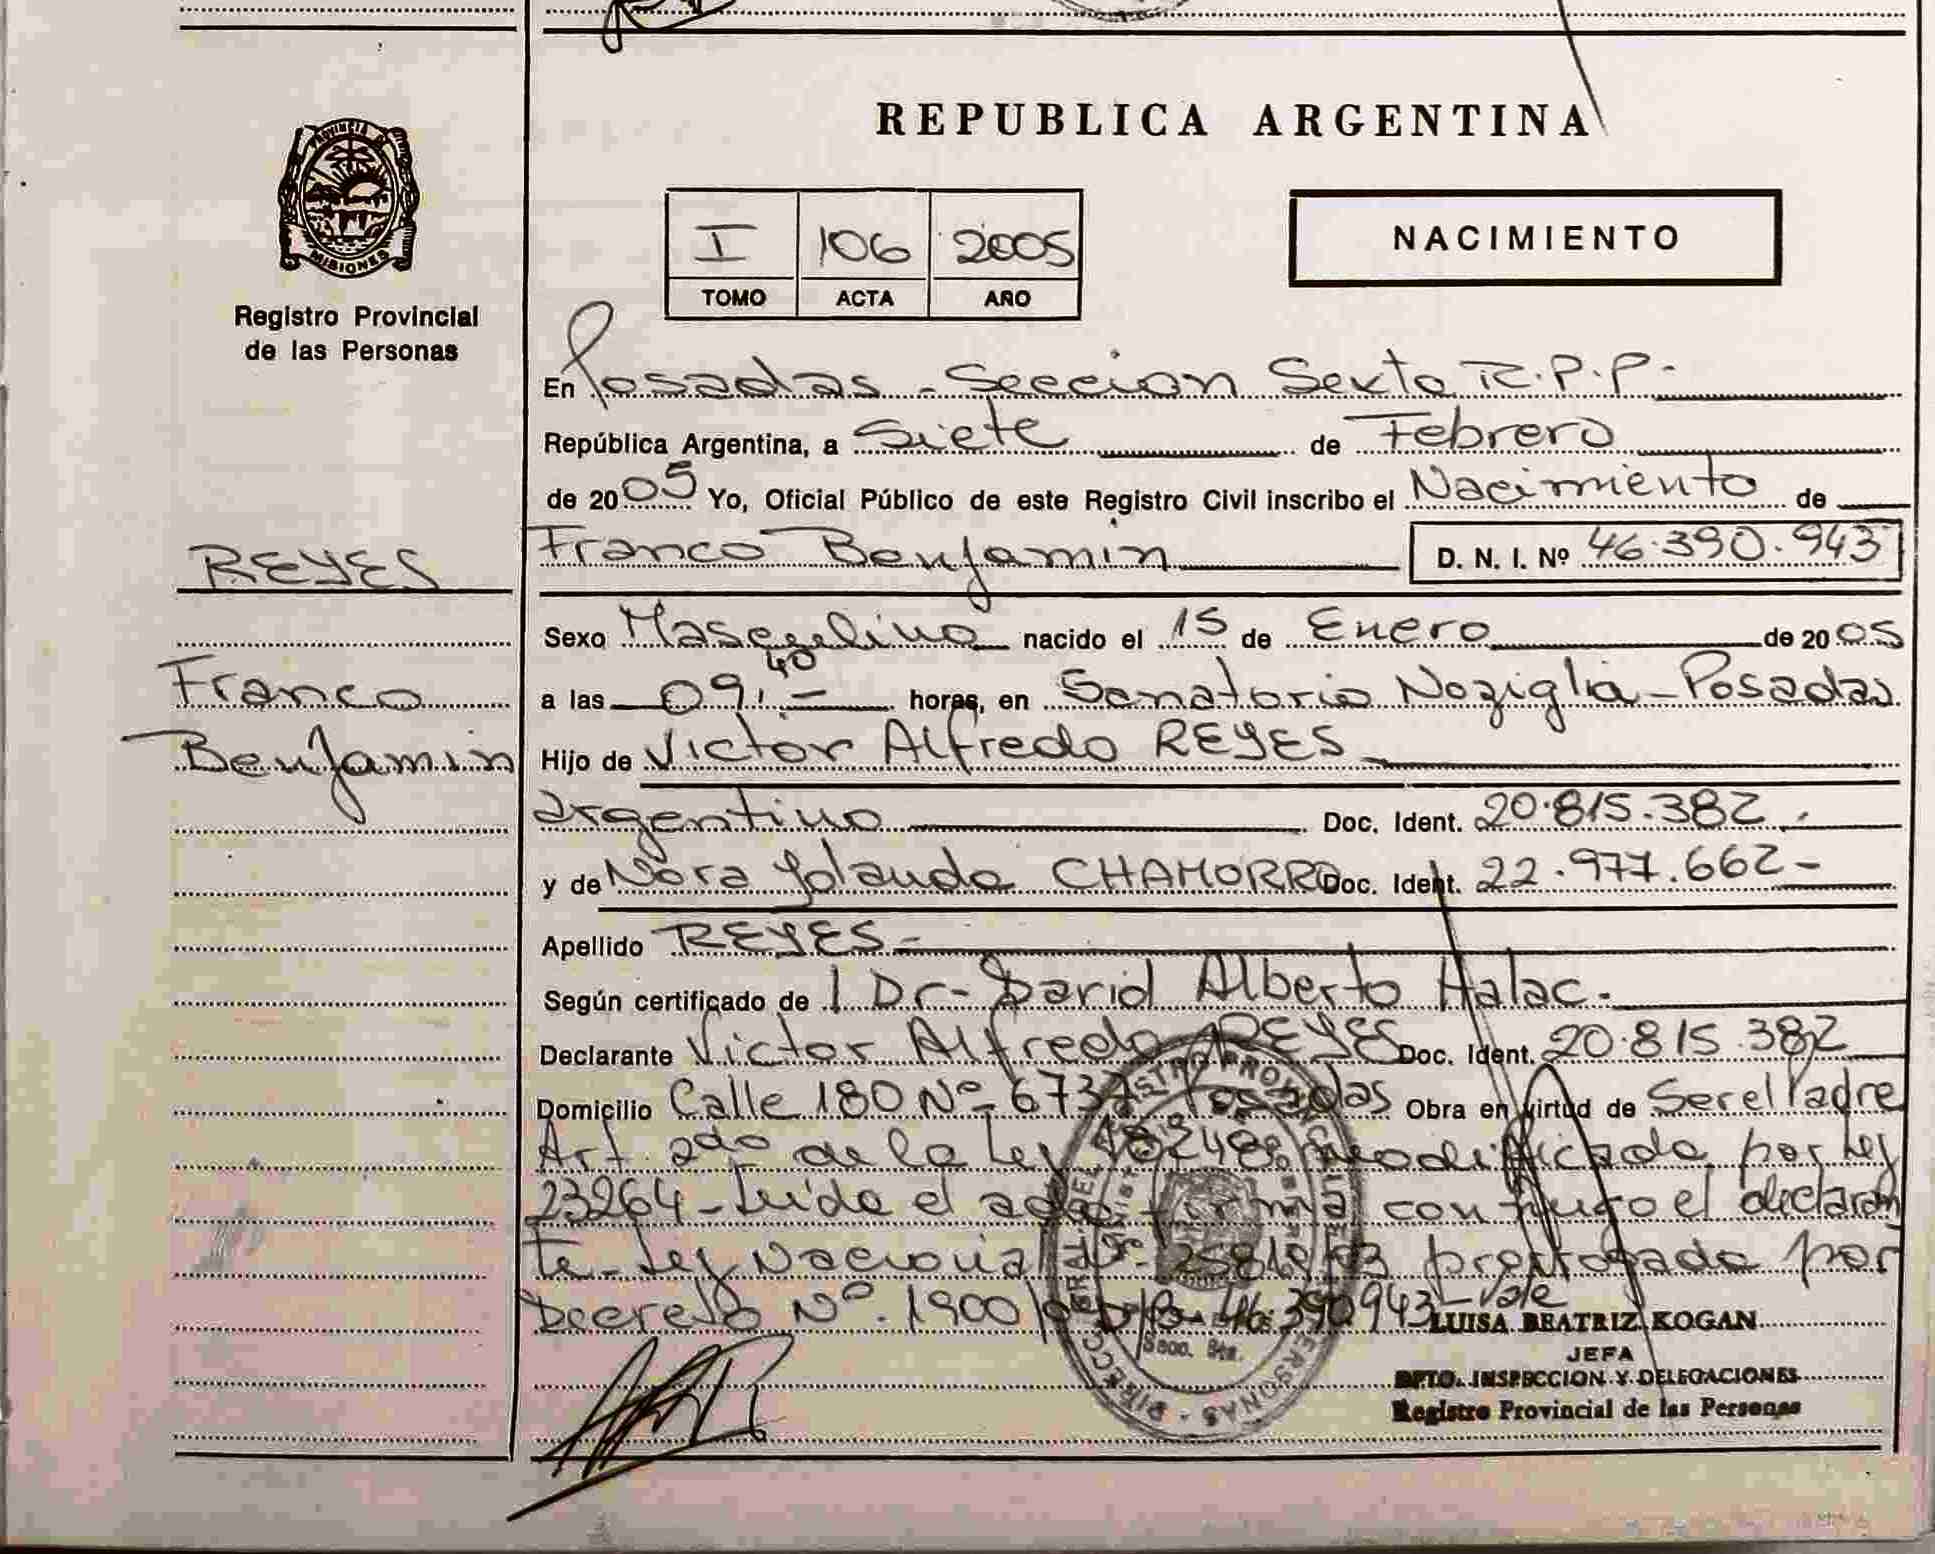 PROVINCIA DE
MISIONES
Registro Provincial
de las Personas
REYES
Franco
Benjamin
REPUBLICA ARGENTINA
I 106 2005
TOMO ACTA AÑO
NACIMIENTO
En Posadas - Seccion Sexta R.P.P.-
República Argentina, a Siete de Febrero
de 2005 Yo, Oficial Público de este Registro Civil inscribo el Nacimiento de
Franco Benjamin D. N. I. Nº 46.390.943
Sexo Masculino nacido el 15 de Enero de 2005
a las 09,40 - horas, en Sanatorio Noziglia - Posadas
Hijo de Victor Alfredo REYES
argentino Doc. Ident. 20.815.382.-
y de Nora Yolanda CHAMORRO Doc. Ident. 22.977.662-
Apellido REYES-
Según certificado de l Dr- David Alberto Halac.
Declarante Victor Alfredo REYES Doc. Ident. 20.815.382
Domicilio Calle 180 Nº 6737 Posadas Obra en virtud de Ser el Padre
Art. 2do de la Ley 18248 modificada por Ley
23264 - Leida el acta firma conmigo el declaran
te - Ley Nacional Nº 25819/03 prorrogada por
Decreto Nº. 1900/ 46.390943 - Vale
LUISA BEATRIZ KOGAN
JEFA
DPTO. INSPECCION Y DELEGACIONES
Registro Provincial de las Personas